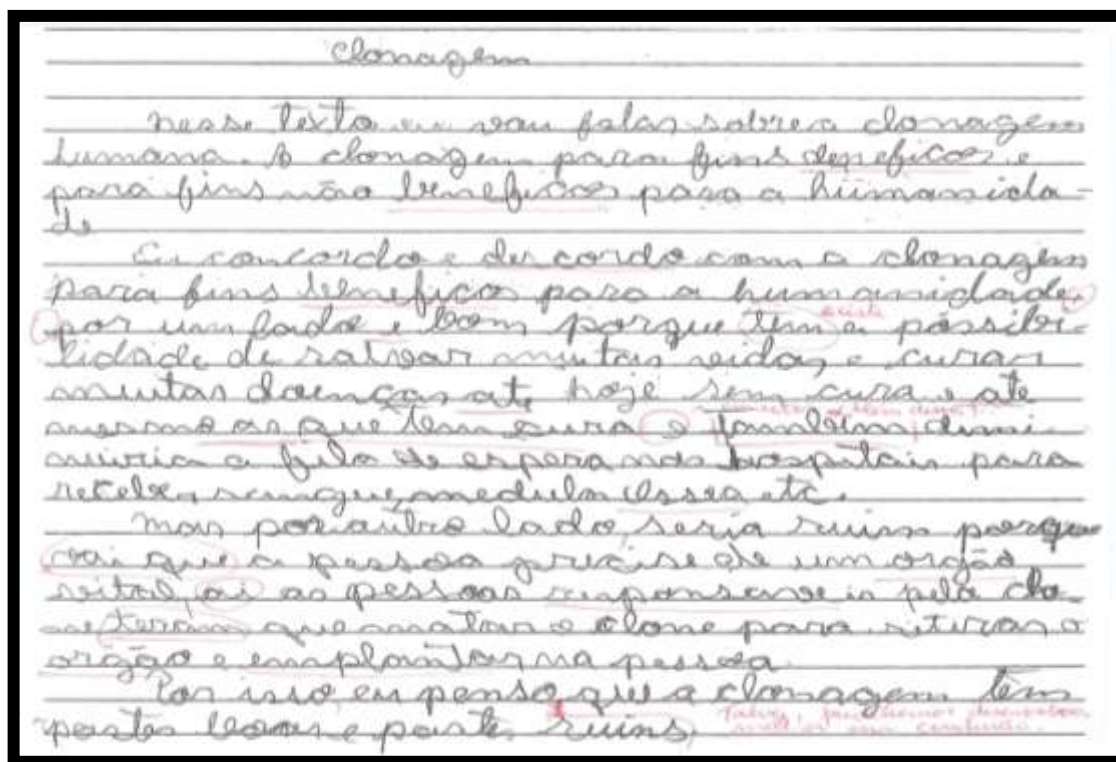 Clonagem
Nesse texto eu vou falar sobre a clonagem
humana. A clonagem para fins deneficos e
para fins não beneficos para a humanida-
de
Eu concordo e discordo com a clonagem
para fins beneficos para a humanidade,
existe
por um lado e bom porque tem a possibi-
lidade de salvar muitas vidas e curar
muitas doenças até hoje sem cura e até
mesmo as que tem cura e também dimi-
nuiria a fila de espera nos hospitais para
receber sangue, medula ossea etc.
Mas por outro lado, seria ruim porque
vai que a pessoa precise de um orgão
vital, ai as pessoas responsaveis pelo clo-
ne teram que matar o clone para retirar o
orgão e emplantar na pessoa.
Por isso eu penso que a clonagem tem
partes boas e partes ruins.
Talvez pudéssemos desenvolver
conclusão.